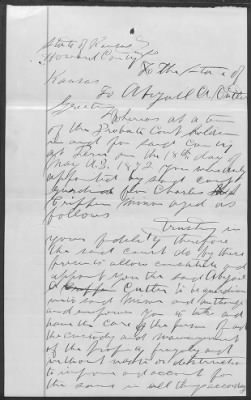 State of Kansas
Howard County
The State of
Kansas
To Abigail A. Cutler
Greeting
Whereas at a term
of the Probate Court holden
in and for said County
at Term on the 18th day of
May A.D. 1872 you were duly
appointed by said court
guardian for Charles
Griffin Minor aged as
follows
Trusting in
your fidelity therefore
the said court do by these
presents allow constitute and
appoint you the said Abigail
A Cutler to be guardian
said Minor and authorize
and empower you to take and
have the care of the person of and
the custody and management
of the property frugally and
without waste or destruction
to improve and account for
the same in all things according